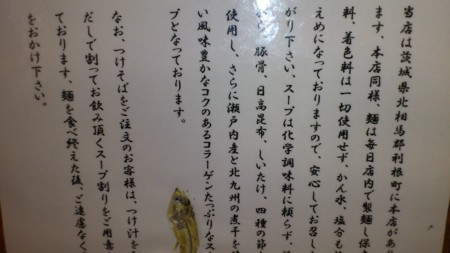 当店は茨城県北相馬郡利根町に本店があり
ます。本店同様、麺は毎日店内で製麺し保
料、着色料は一切使用せず、かん水、塩分も
えめになっておりますので、安心してお召し
がり下さい。スープは化学調味料に頼らず、
から、豚骨、日高昆布、しいたけ、四種の節
使用し、さらに瀬戸内産と北九州の煮干を
い風味豊かなコクのあるコラーゲンたっぷりなス
プとなっております。
なお、つけそばをご注文のお客様は、つけ汁を
だしで割ってお飲み頂くスープ割りをご用意
ております。麺を食べ終えた後、ご遠慮なく
をおかけ下さい。